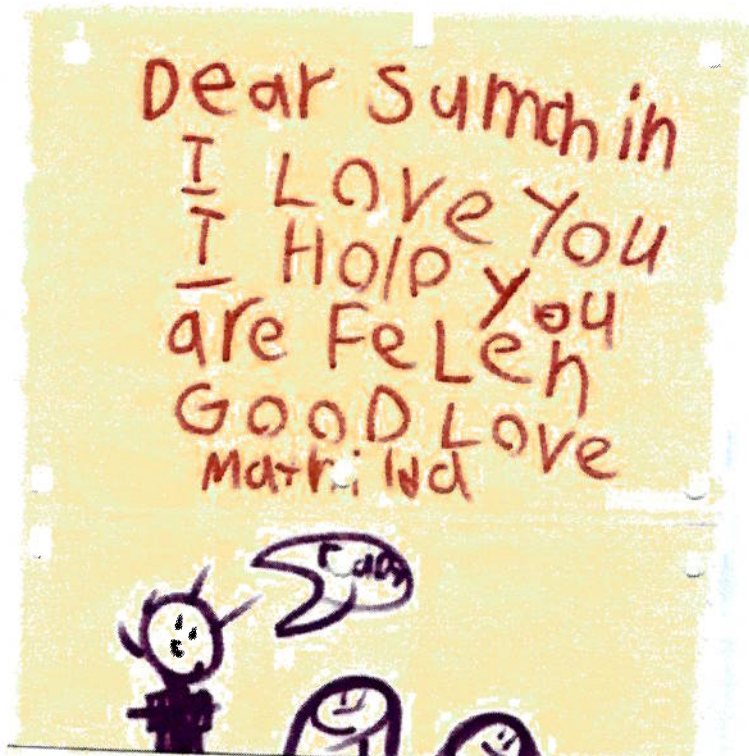 Dear Sumchin
I Love You
I Holp You
are FeLeh
GOOD LOVE